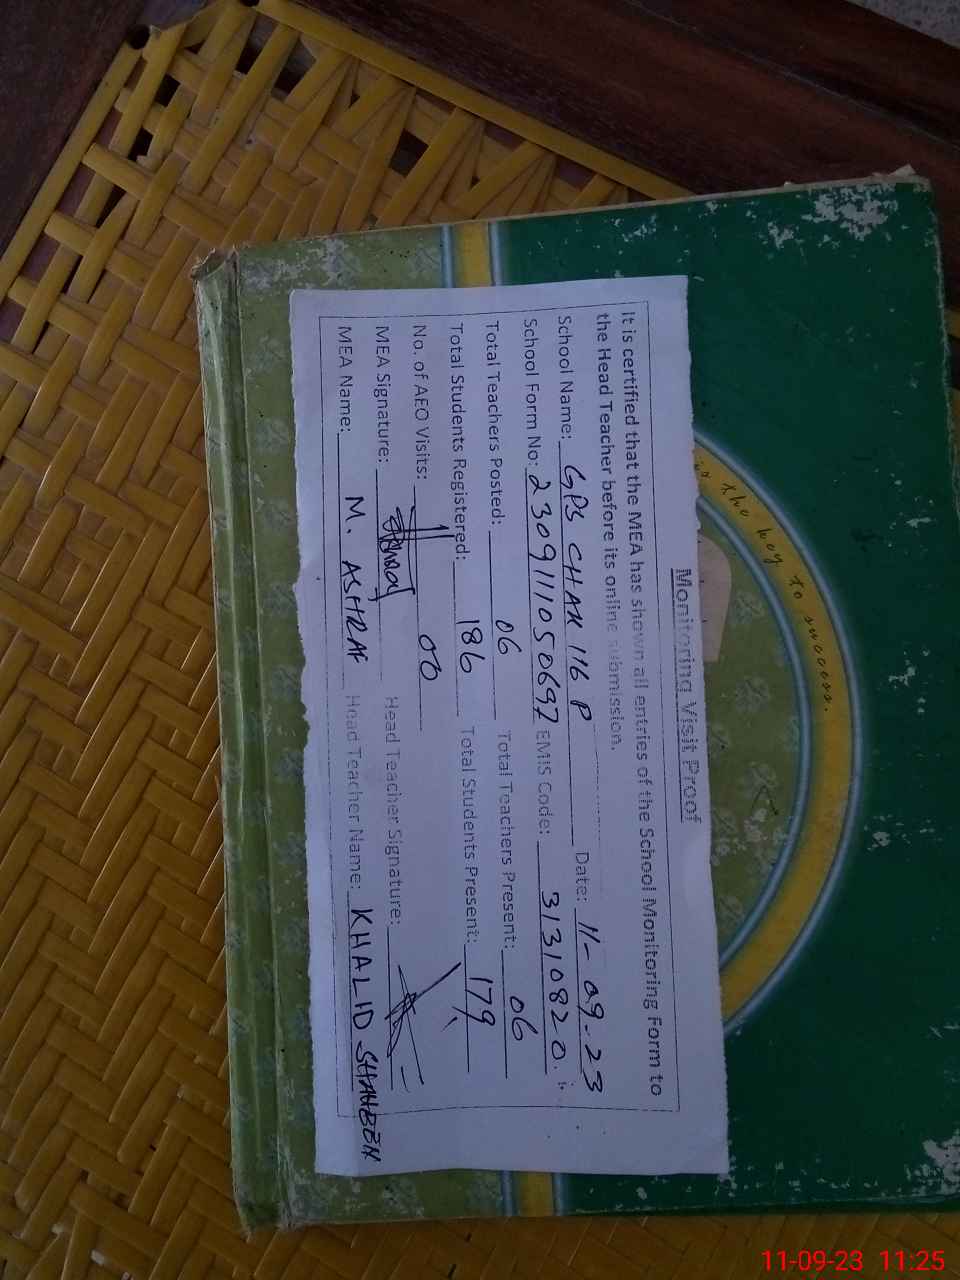 Monitoring Visit Proof
It is certified that the MEA has shown all entries of the School Monitoring Form to
the Head Teacher before its online submission.
School Name: GPS CHAK 116 P Date: 11-09-23
School Form No: 2309111050697 EMIS Code: 31310820.
Total Teachers Posted: 06 Total Teachers Present: 06
Total Students Registered: 186 Total Students Present: 179
No. of AEO Visits: 00
MEA Signature: Head Teacher Signature:
MEA Name: M. ASHRAF Head Teacher Name: KHALID
is the key to success.
11-09-23 11:25